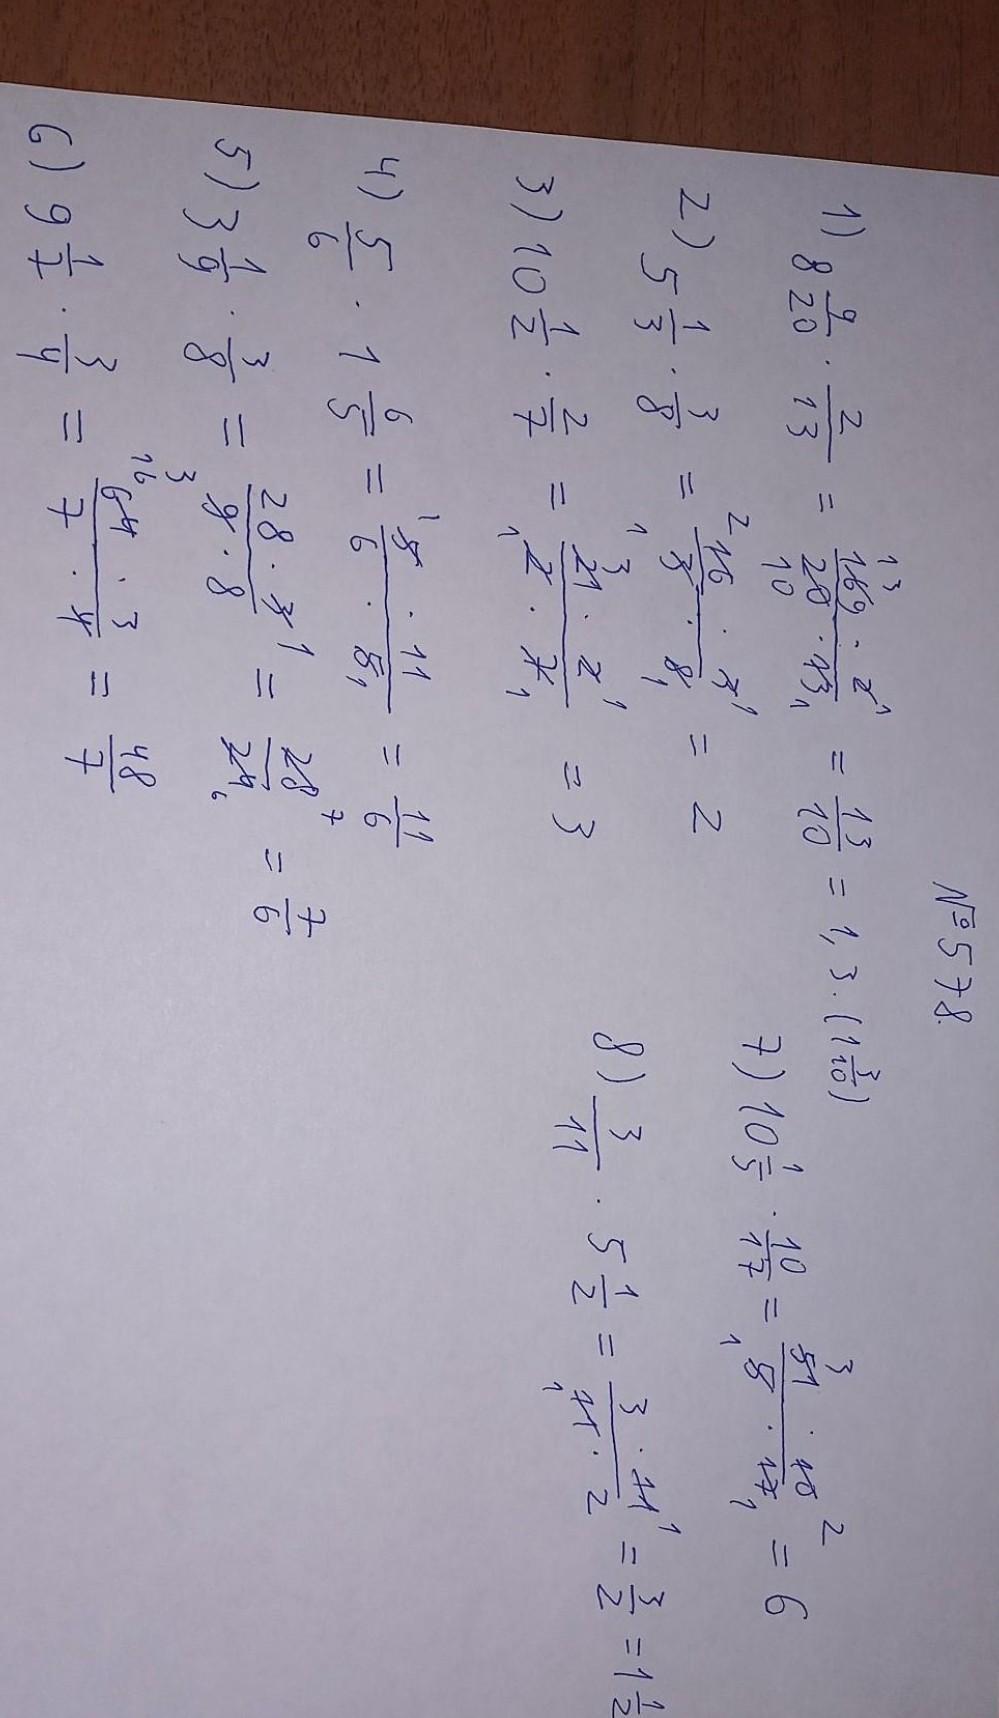 №578.
1) 8 9/20 · 2/13 = 169 · 2 / 20 · 13 = 13/10 = 1,3. (1 3/10)
2) 5 1/3 · 3/8 = 16 · 3 / 3 · 8 = 2
3) 10 1/2 · 2/7 = 21 · 2 / 2 · 7 = 3
4) 5/6 · 1 6/5 = 5 · 11 / 6 · 5 = 11/6
5) 3 1/9 · 3/8 = 28 · 3 / 9 · 8 = 28/24 = 7/6
6) 9 1/7 · 3/4 = 64 · 3 / 7 · 4 = 48/7
7) 10 1/5 · 10/17 = 51 · 10 / 5 · 17 = 6
8) 3/11 · 5 1/2 = 3 · 11 / 11 · 2 = 3/2 = 1 1/2